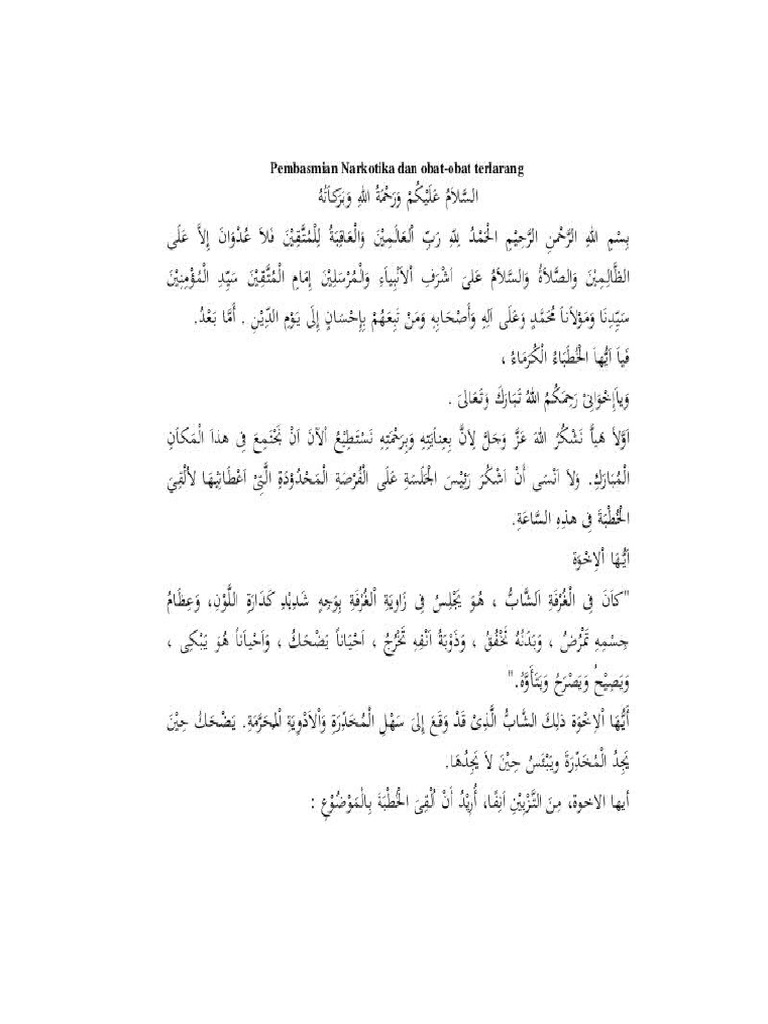 Pembasmian Narkotika dan obat-obat terlarang
السَّلاَمُ عَلَيْكُمْ وَرَحْمَةُ اللهِ وَبَرَكاَتُهُ
بِسْمِ اللهِ الرَّحْمنِ الرَّحِيْمِ الْحَمْدُ لِلّهِ رَبِّ اْلعَالَمِيْنَ وَالْعَاقِبَةُ لِلْمُتَّقِيْنَ فَلاَ عُدْوَانَ إِلاَّ عَلَى
الظَّالِمِيْنَ وَالصَّلاَةُ وَالسَّلاَمُ عَلىَ اَشْرَفِ اْلاَنْبِياَءِ وَالْمُرْسَلِيْنَ إِمَامِ الْمُتَّقِيْنَ سَيِّدِ الْمُؤْمِنِيْنَ
سَيِّدِنَا وَمَوْلاَناَ مُحَمَّدٍ وَعَلَى آلِهِ وَأَصْحَابِهِ وَمَنْ تَبِعَهُمْ بِإِحْسَانٍ إِلَى يَوْمِ الدِّيْنِ . أَمَّا بَعْدُ.
فَيَا اَيُّهاَ الْخُطَبَاءُ الْكُرَمَاءُ ،
وَياَإِخْوَانِيْ رَحِمَكُمُ اللهُ تَبَارَكَ وَتَعَالىَ .
اَوَّلاً هَيَّا نَشْكُرُ اللهَ عَزَّ وَجَلَّ لِاَنَّ بِعِناَيَتِهِ وَبِرَحْمَتِهِ نَسْتَطِيْعُ اْلآنَ اَنْ نَجْتَمِعَ فِى هذاَ الْمَكاَنِ
الْمُبَارَكِ. وَلاَ اَنْسَى أَنْ اَشْكُرَ رَئِيْسَ الْجَلْسَةِ عَلَى الْفُرْصَةِ الْمَحْدُوْدَةِ الَّتِيْ اَعْطَانِيْهَا لأُلْقِيَ
الْخُطْبَةَ فِى هذِهِ السَّاعَةِ.
اَيُّهَا اْلاِخْوَة
"كاَنَ فِى الْغُرْفَةِ اَلشَّابُّ ، هُوَ يَجْلِسُ فِى زَاوِيَةِ اْلغُرْفَةِ بِوَجْهٍ شَدِيْدٍ كَدَارَةِ اللَّوْنِ، وَعِظَامُ
جِسْمِهِ تَمْرُضُ ، وَبَدَنُهُ تَخْفُقُ ، وَذَوْبَةُ اَنْفِهِ تَخْرُجُ ، اَحْيَاناً يَضْحَكُ ، وَاَحْياَناً هُوَ يَبْكِى ،
وَيَصِيْحُ وَيَصْرَحُ وَيَتَأَوَّهُ."
أَيُّهَا اْلاِخْوَة ذلِكَ الشَّابُّ الَّذِيْ قَدْ وَقَعَ إِلىَ سَهْلِ الْمُخَدِّرَةِ وَاْلاَدْوِيَةِ الْمحَرَّمَةِ. يَضْحَكُ حِيْنَ
يَجِدُ الْمُخَدِّرَةَ ويَبْئَسُ حِيْنَ لاَ يَجِدُهَا.
أيها الاخوة، مِنَ التَّزْيِيْنِ اَنِفًا، أُرِيْدُ أَنْ اُلْقِيَ الْخُطْبَةَ بِالْمَوْضُوْعِ :